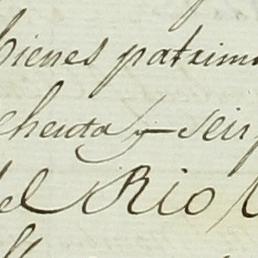 bienes patrimo
chenta y seis
del Rio